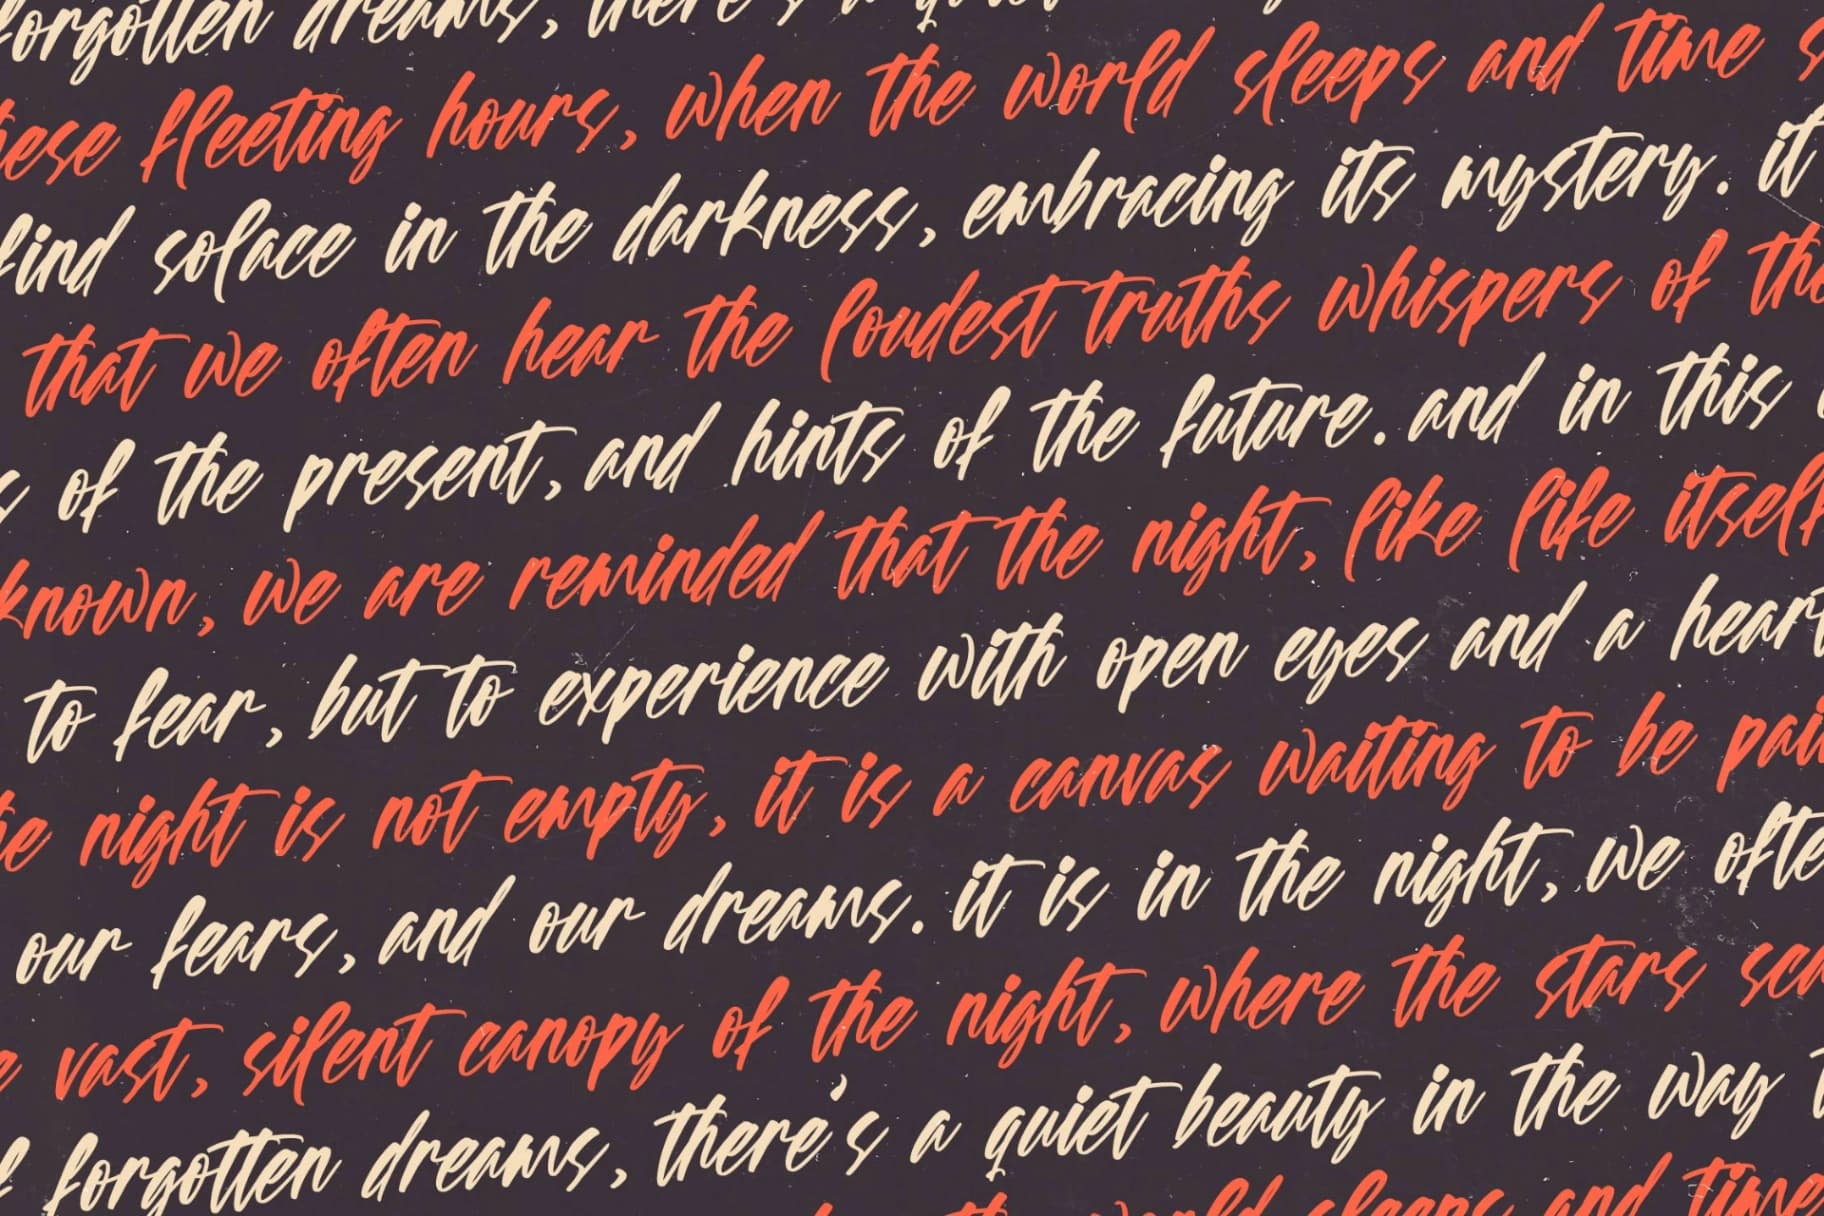 forgotten dreams, there's a quiet
these fleeting hours, when the world sleeps and time s
find solace in the darkness, embracing its mystery. it
that we often hear the loudest truths whispers of the
s of the present, and hints of the future. and in this
known, we are reminded that the night, like life itself
to fear, but to experience with open eyes and a heart
he night is not empty, it is a canvas waiting to be pai
our fears, and our dreams. it is in the night, we ofte
e vast, silent canopy of the night, where the stars sca
f forgotten dreams, there's a quiet beauty in the way t
the world sleeps and time